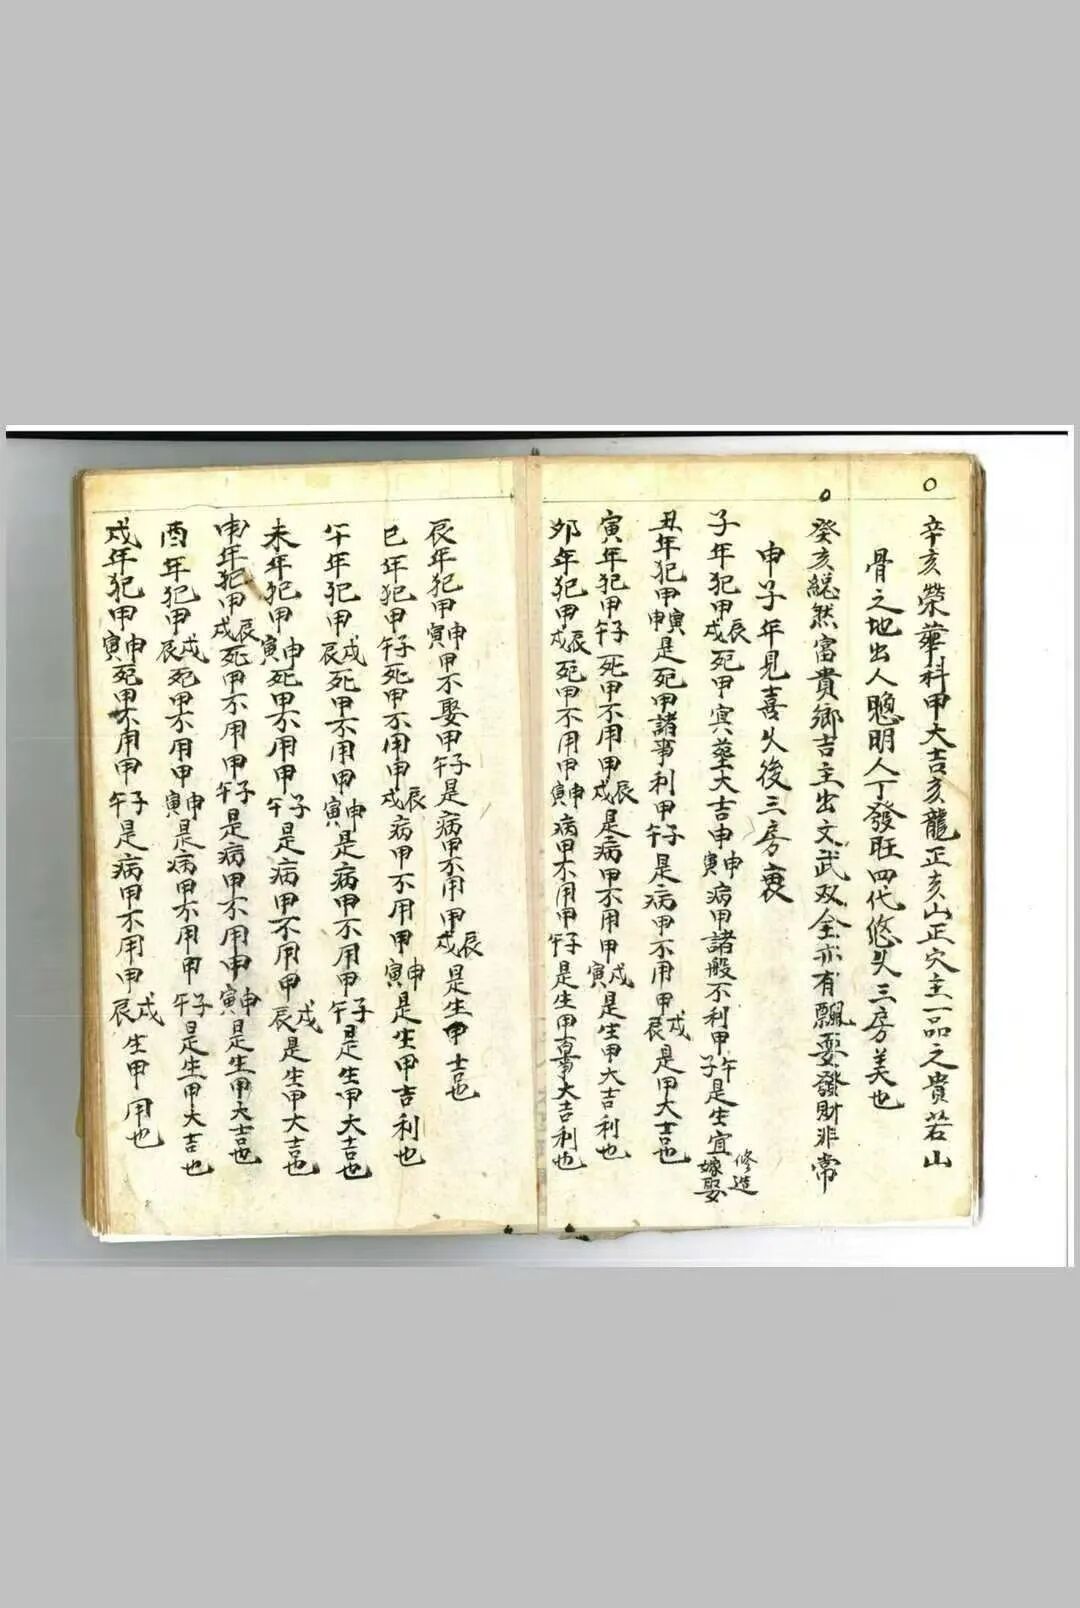 辛亥榮華科甲大吉亥龍正亥山正穴主一品之貴若山
骨之地出人聰明人丁發旺四代悠久三房美也
癸亥縂然富貴鄉吉主出文武双全亦有飄要發財非常
申子年見喜久後三房衰
子年犯甲辰戌死甲㝠塟大吉甲申寅病甲諸般不利甲午子是生宜修造嫁娶
丑年犯甲寅申是死甲諸事利甲子午是病甲不用甲戌辰是甲大吉也
寅年犯甲子午死甲不用甲辰戌是病甲不用甲戌寅是生甲大吉利也
夘年犯甲辰戌死甲不用甲申寅病甲不用甲子午是生甲事大吉利也
辰年犯甲申寅甲不娶甲子午是病甲不用甲辰戌是生甲吉也
巳年犯甲子午死甲不用甲辰戌病甲不用甲申寅是生甲吉利也
午年犯甲戌辰死甲不用甲申寅是病甲不用甲子午是生甲大吉也
未年犯甲申寅死甲不用甲子午是病甲不用甲戌辰是生甲大吉也
申年犯甲辰戌死甲不用甲子午是病甲不用甲申寅是生甲大吉也
酉年犯甲戌辰死甲不用甲申寅是病甲不用甲子午是生甲大吉也
戌年犯甲申寅死甲不用甲子午是病甲不用甲戌辰生甲用也